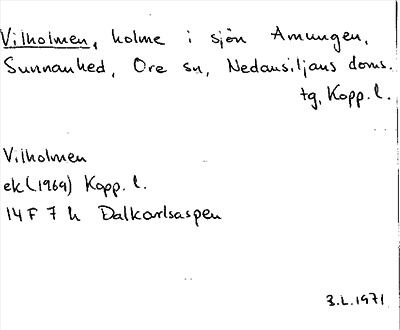 Vilholmen, holme i sjön Amungen,
Sunnanhed, Ore sn, Nedansiljans doms.
tg, Kopp. l.
Vilholmen
ek (1969) Kopp. l.
14 F 7 h Dalkarlsaspen
3.L.1971